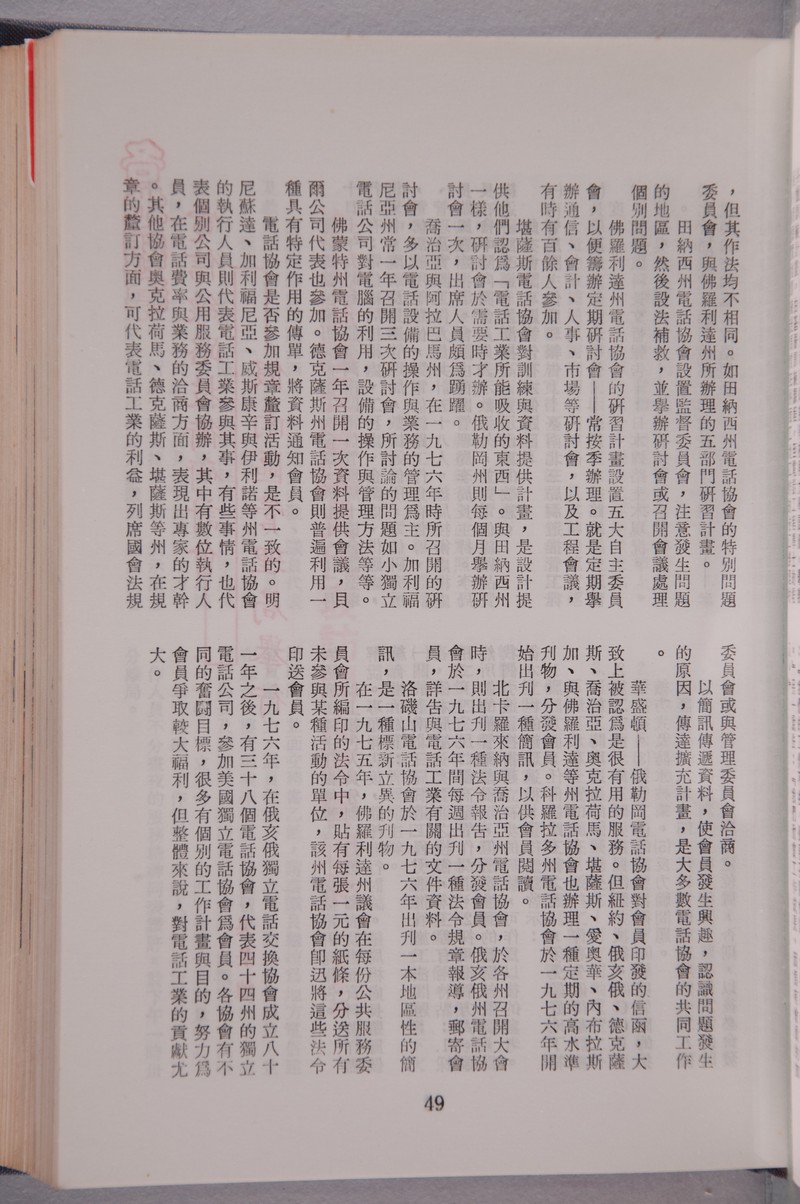 ，但其作法均不相同。如田納西州電話協會的特別問題
委員會，與佛羅利達州所辦理的五部門研習計畫。
田納西州電話協會設置監督委員會，注意發生問題
的地區，然後設法補救，並舉辦研討會或召開會議處理
個別問題。
佛羅利達州電話協會的研習計畫設置五大自主委員
會，以便籌辦定期研討會——常按季辦理。就是定期舉
辦通信、會計、人事、市場等研討會，以及工程會議，
有時有百餘人參加。
堪薩斯電話協會對訓練與資料提供計畫，是設計提
供他們認爲「電話工業所能吸收的東西」。與田納西州
一樣，研討會於需要時才辦。俄勒岡州則每個月舉辦研
討會一次，出席人員頗爲踴躍。
喬治亞與阿拉巴馬州，在一九七六年時所召開的研
討會，多以電話設備的操作與業務的管理爲主。加利福
尼亞州常一年召開三次研討會，所討論的問題如小獨立
電話公司對電腦的利用，設備的操作與管理方法等等。
佛蒙特州電話協會一年召開一次資料提供會議，貝
爾公司代表也參加。德克薩斯州電話協會則普遍利用一
種具有特定作用的傳單，將資料通知會員。
電話協會是否參加規章釐訂活動，是不一致的。明
尼蘇達、加利福尼亞、威斯康辛與伊利諾等州電話協會
的執行人員則代表電話工業參與其事，有些事情，也代
表個別公司與公用服務委員會協辦，其中有數位執行人
員，在電話費率與業務的洽商方面，表現出專家的才幹
。其他協會奧克拉荷馬、德克薩斯、堪薩斯等州，在規
章的釐訂方面，可代表電話工業的利益，列席國會法規
委員會或與管理委員會洽商。
以簡訊傳遞資料，使會員發生興趣，認識問題發生
的原因，傳達擴充計畫，是大多數電話協會的共同工作
。
華盛頓——俄勒岡電話協會對會員印發的信函，大
致上被認爲是很有用的服務。但紐約、俄亥俄、德克薩
斯、喬治亞、奧克拉荷馬、堪薩斯、愛奧華、內布拉斯
加、與佛羅利達等州電話協會也辦理一種定期的高水準
刊物，分發會員。科羅拉多州電話協會於一九七六年開
始出刊一種簡訊，以供會員閱讀。
北卡羅來納與喬治亞州電話協會，於各州召開大會
時，則出刊一種法令報告，分發會員。俄亥俄州電話協
會於一九七六年間每週出刊一種法令規章報導，郵寄會
員，詳告與電話工業有關的文件資料。
洛磯山電話協會於一九七六年出刊一本地區性的簡
訊，是一種標新立異的刊物。
在一九七五年，佛羅利達州議會在每份公共服務委
員會所編印的法令中，貼有每張一元的紙條，分送所有
未參與某種活動的單位，該州電話協會卽迅將這些法令
印送會員。
一九七六年，在俄亥俄獨立電話交換協會成立八十
一年之後，有三十八個電話協會，代表四十四州的獨立
電話公司，參加美國獨立電話協會爲會員。各協會有不
同的奮鬪目標，很多有個別的工作計畫與目的，努力爲
會員爭取較大福利，但整體來說，對電話工業的貢獻尤
大。
49